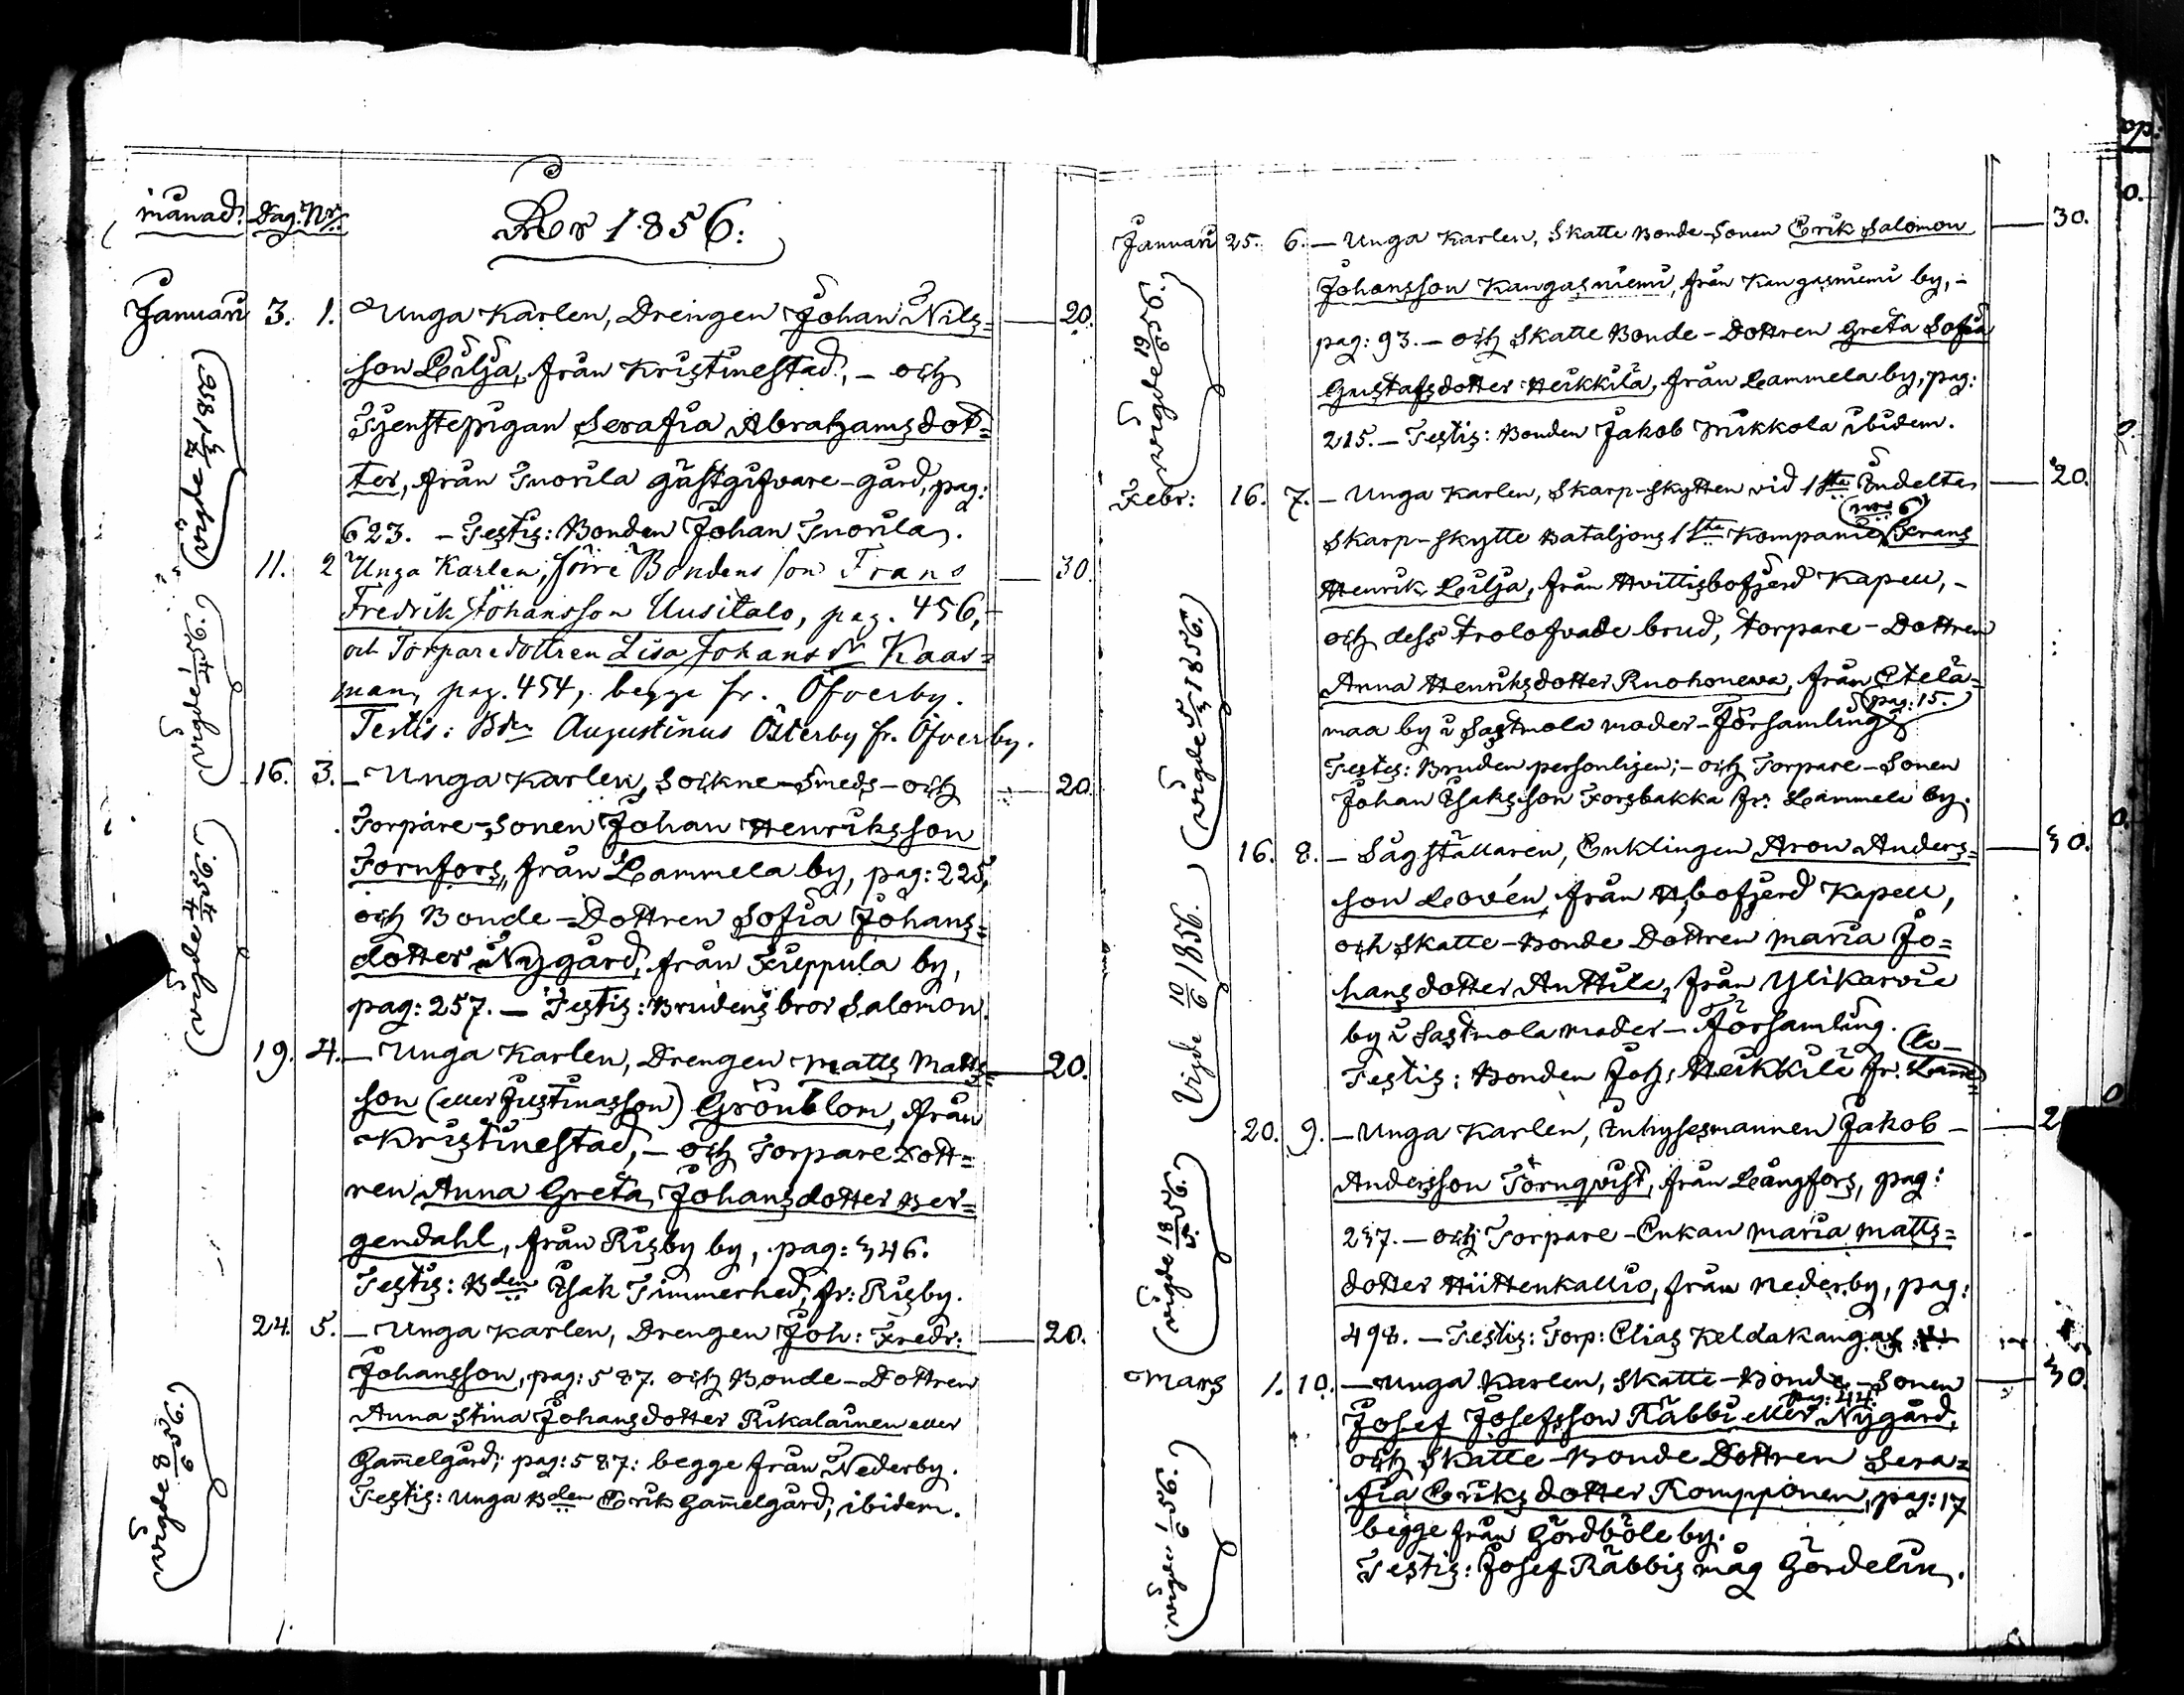 månad. Dag. Nr.
Året 1856:
Januari 3. 1. Unga Karlen, Drengen Johan Nils= 20.
son Lilja, från Kristinestad, – och
Tjenstepigan Serafia Abrahamsdot=
ter, från Tuorila gästgifvare-gård, pag:
623. – Testis: Bonden Johan Tuorila.
11. 2 Unga Karlen, förre Bondens son Frans 30.
Fredrik Johansson Uusitalo, pag. 456,
och Torparedottren Lisa Johansdr Kaas=
man, pag. 454, begge fr. Öfverby.
Testis: Bdn Augustinus Österby fr. Öfverby.
16. 3. – Unga Karlen, Sockne-Smeds- och 20.
Torpare-Sonen Johan Henriksson
Fornfors, från Lammela by, pag: 225,
och Bonde-Dottren Sofia Johans=
dotter Nygård, från Filppula by,
pag: 257. – Testis: Brudens bror Salomon.
19. 4. – Unga Karlen, Drengen Matts Matts= 20.
son (eller Justinasson) Grönblom, från
Kristinestad, – och Torpare Dott=
ren Anna Greta Johansdotter Ber=
gendahl, från Risby by, pag: 346.
Testis: Bden Isak Timmerhed, fr: Risby.
24. 5. – Unga Karlen, Drengen Joh: Fredr: 20.
Johansson, pag: 587. och Bonde-Dottren
Anna Stina Johansdotter Rikalainen eller
Gammelgård, pag: 587: begge från Nederby.
Testis: Unga Bden Erik Gammelgård, ibidem.
vigde 1856.
vigde 56.
vigde 56.
vigde 8/9 56.
Januari 25. 6. – Unga Karlen, Skatte Bonde-Sonen Erik Salomon 30.
Johansson Kangasniemi, från Kangasniemi by, –
pag: 93. – och Skatte Bonde-Dottren Greta Sofia
Gustafsdotter Heikkilä, från Lammela by, pag:
215. – Testis: Bonden Jakob Mikkola ibidem.
Febr: 16. 7. – Unga Karlen, Skarp-skytten vid 1sta Indelta 20.
(No 6)
Skarp-skytte Bataljons 1sta Kompanie, Frans
Henrik Lilja, från Hvittisbofjerd Kapell, –
och dess trolofvade brud, torpare-Dottren
Anna Henriksdotter Ruohonewa, från Etelä-
(pag: 15.
maa by i Sastmola moder-Församling
Testes: Bruden personligen; – och Torpare-Sonen
Johan Isaksson Forsbakka fr: Lammela by.
16. 8. – Sågställaren, Enklingen Aron Anders= 30.
son Lovén, från Hbofjerd Kapell,
och Skatte-Bonde Dottren Maria Jo=
hansdotter Anttila, från Ylikarvia
by i Sastmola moder-Församling.
(la –
Testis: Bonden Joh: Heikkilä fr: Lamme
20. 9. – Unga Karlen, Inhysesmannen Jakob – 2
Andersson Törnqvist, från Långfors, pag:
237. – och Torpare-Enkan Maria Matts=
dotter Hiittenkallio, från Nederby, pag:
498. – Testis: Torp: Elias Keldakangas
Mars 1. 10. – Unga Karlen, Skatte-Bonde-Sonen 30.
pag: 44.
Josef Josefsson Räbbi eller Nygård,
och Skatte-Bonde Dottren Sera=
fia Eriksdotter Kompponen, pag: 17
begge från Gördböle by.
Testis: Josef Räbbis måg Gördelin.
vigde 19/6 56.
(vigde 5/3 1856.)
Vigde 10/6 1856.
(vigde 18/5 56.)
(vigde 1/6 56.)